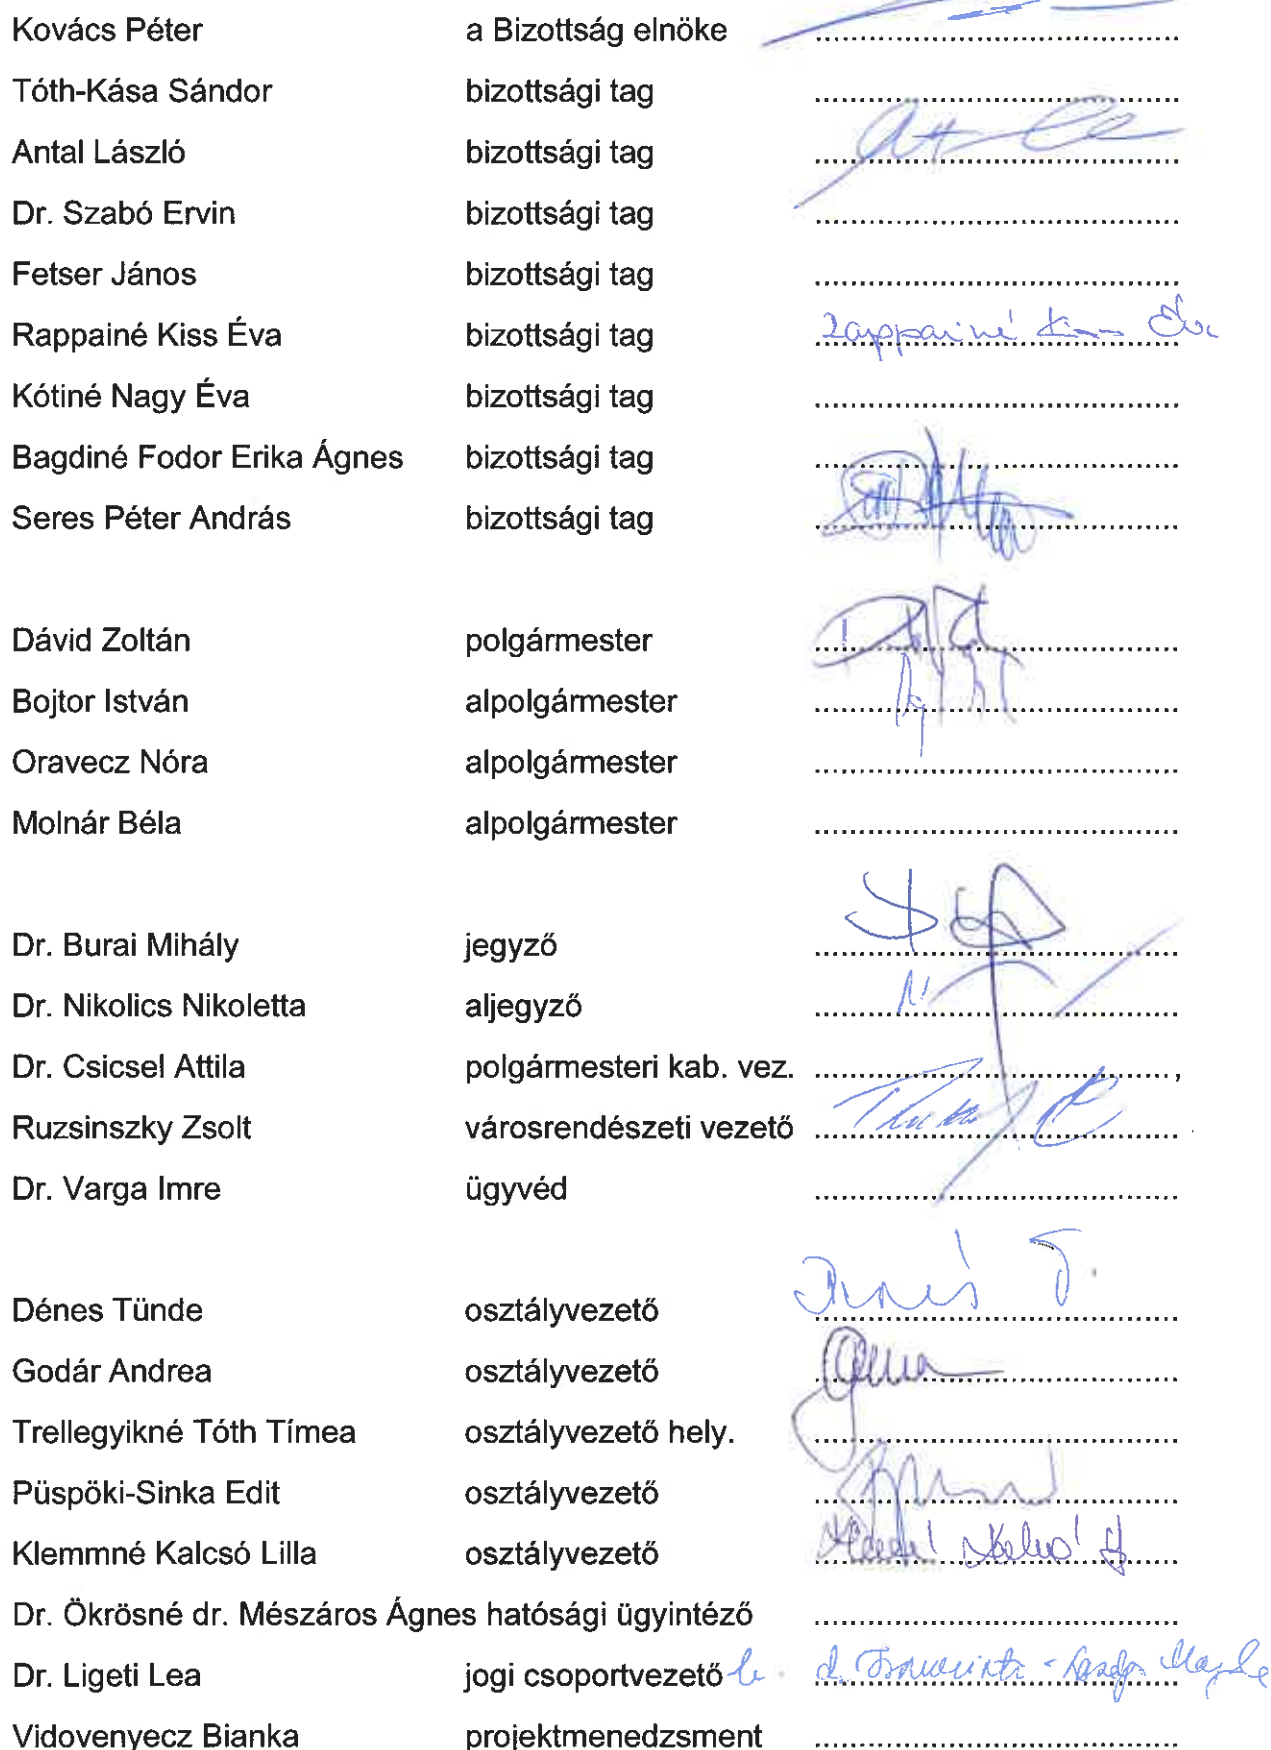 Kovács Péter a Bizottság elnöke ........................................
Tóth-Kása Sándor bizottsági tag ........................................
Antal László bizottsági tag ........................................
Dr. Szabó Ervin bizottsági tag ........................................
Fetser János bizottsági tag ........................................
Rappainé Kiss Éva bizottsági tag Rappainé Kiss Éva
Kótiné Nagy Éva bizottsági tag ........................................
Bagdiné Fodor Erika Ágnes bizottsági tag ........................................
Seres Péter András bizottsági tag ........................................
Dávid Zoltán polgármester ........................................
Bojtor István alpolgármester ........................................
Oravecz Nóra alpolgármester ........................................
Molnár Béla alpolgármester ........................................
Dr. Burai Mihály jegyző ........................................
Dr. Nikolics Nikoletta aljegyző ........................................
Dr. Csicsel Attila polgármesteri kab. vez. ........................................,
Ruzsinszky Zsolt városrendészeti vezető ........................................
Dr. Varga Imre ügyvéd ........................................
Dénes Tünde osztályvezető Dénes T.
Godár Andrea osztályvezető ........................................
Trellegyikné Tóth Tímea osztályvezető hely. ........................................
Püspöki-Sinka Edit osztályvezető ........................................
Klemmné Kalcsó Lilla osztályvezető ........................................
Dr. Ökrösné dr. Mészáros Ágnes hatósági ügyintéző ........................................
Dr. Ligeti Lea jogi csoportvezető
Vidovenyecz Bianka projektmenedzsment ........................................